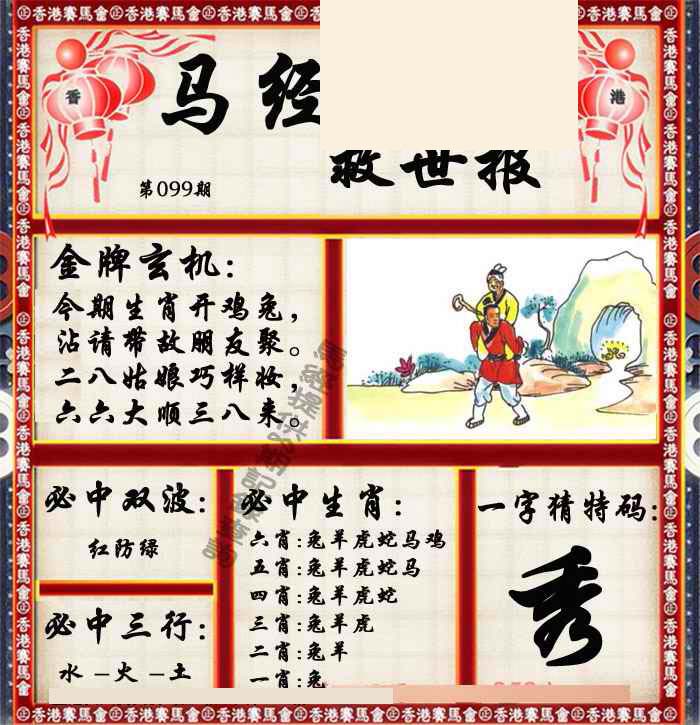 香港賽馬會 香港賽馬會 香港賽馬會 香港賽馬會 香港賽馬會
香
港
马经
救世报
第099期
金牌玄机:
今期生肖开鸡兔,
沾请带故朋友聚。
二八姑娘巧样妆,
六六大顺三八来。
必中双波:
红防绿
必中三行:
水－火－土
必中生肖:
六肖:兔羊虎蛇马鸡
五肖:兔羊虎蛇马
四肖:兔羊虎蛇
三肖:兔羊虎
二肖:兔羊
一肖:兔
一字猜特码:
秀